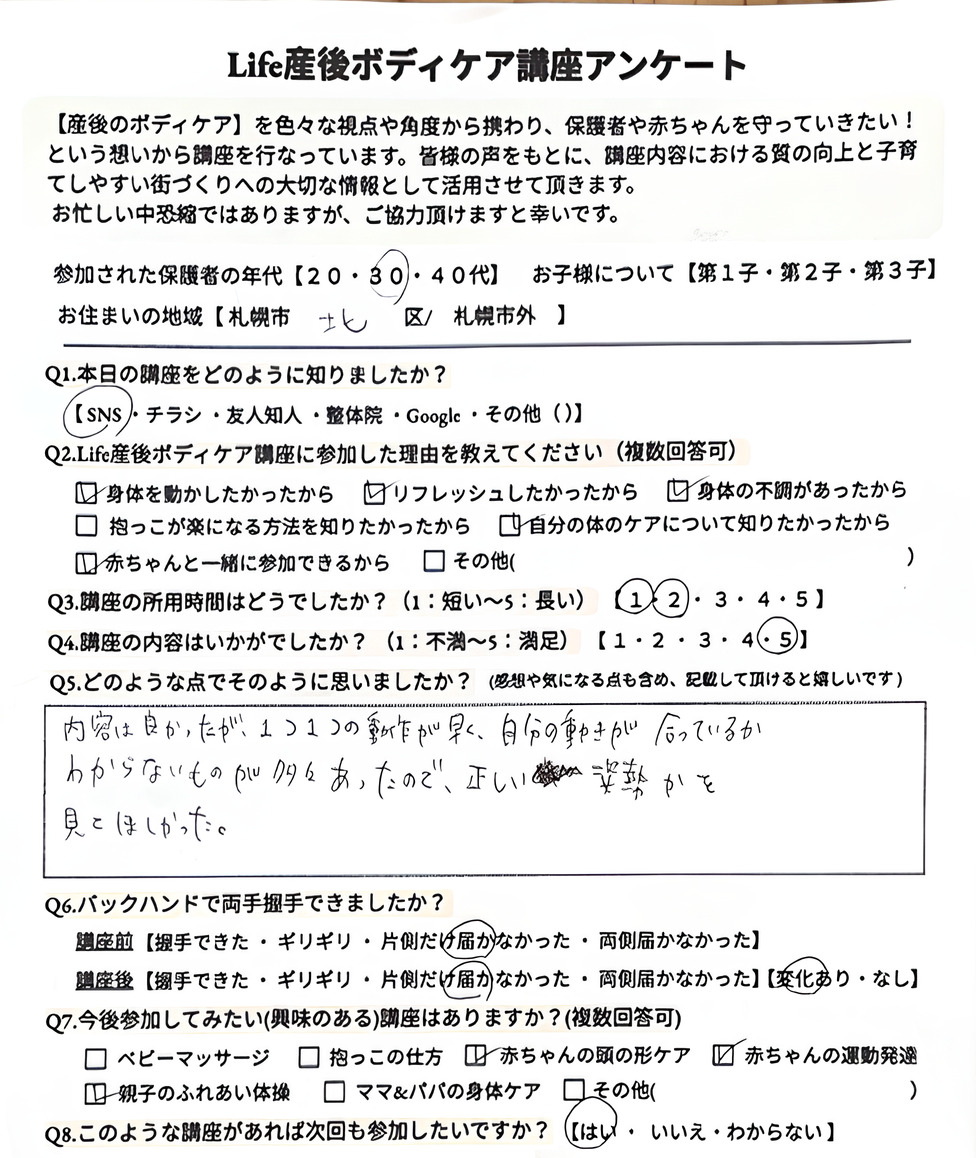 Life産後ボディケア講座アンケート
【産後のボディケア】を色々な視点や角度から携わり、保護者や赤ちゃんを守っていきたい！
という想いから講座を行なっています。皆様の声をもとに、講座内容における質の向上と子育
てしやすい街づくりへの大切な情報として活用させて頂きます。
お忙しい中恐縮ではありますが、ご協力頂けますと幸いです。
参加された保護者の年代【２０・３０・４０代】 お子様について【第１子・第２子・第３子】
お住まいの地域【 札幌市 北 区/ 札幌市外 】
Q1.本日の講座をどのように知りましたか？
【SNS・チラシ ・友人知人 ・整体院 ・Google ・その他（ ）】
Q2.Life産後ボディケア講座に参加した理由を教えてください（複数回答可）
☑身体を動かしたかったから ☑リフレッシュしたかったから ☑身体の不調があったから
☐ 抱っこが楽になる方法を知りたかったから ☑自分の体のケアについて知りたかったから
☑赤ちゃんと一緒に参加できるから ☐ その他( )
Q3.講座の所用時間はどうでしたか？（1：短い〜5：長い） 【 1・2 ・ 3 ・ 4 ・ 5 】
Q4.講座の内容はいかがでしたか？（1：不満〜5：満足）【 1 ・ 2 ・ 3 ・ 4 ・ 5】
Q5.どのような点でそのように思いましたか？（感想や気になる点も含め、記載して頂けると嬉しいです）
内容は良かったが、1つ1つの動作が早く、自分の動きが合っているか
わからないものが多々あったので、正しい 姿勢かを
見てほしかった。
Q6.バックハンドで両手握手できましたか？
講座前【握手できた ・ ギリギリ ・ 片側だけ届かなかった ・ 両側届かなかった】
講座後【握手できた ・ ギリギリ ・ 片側だけ届かなかった ・ 両側届かなかった】【変化あり・なし】
Q7.今後参加してみたい(興味のある)講座はありますか？(複数回答可)
☐ ベビーマッサージ ☐ 抱っこの仕方 ☑赤ちゃんの頭の形ケア ☑ 赤ちゃんの運動発達
☑親子のふれあい体操 ☐ ママ&パパの身体ケア ☐ その他( )
Q8.このような講座があれば次回も参加したいですか？ 【はい ・ いいえ・わからない】